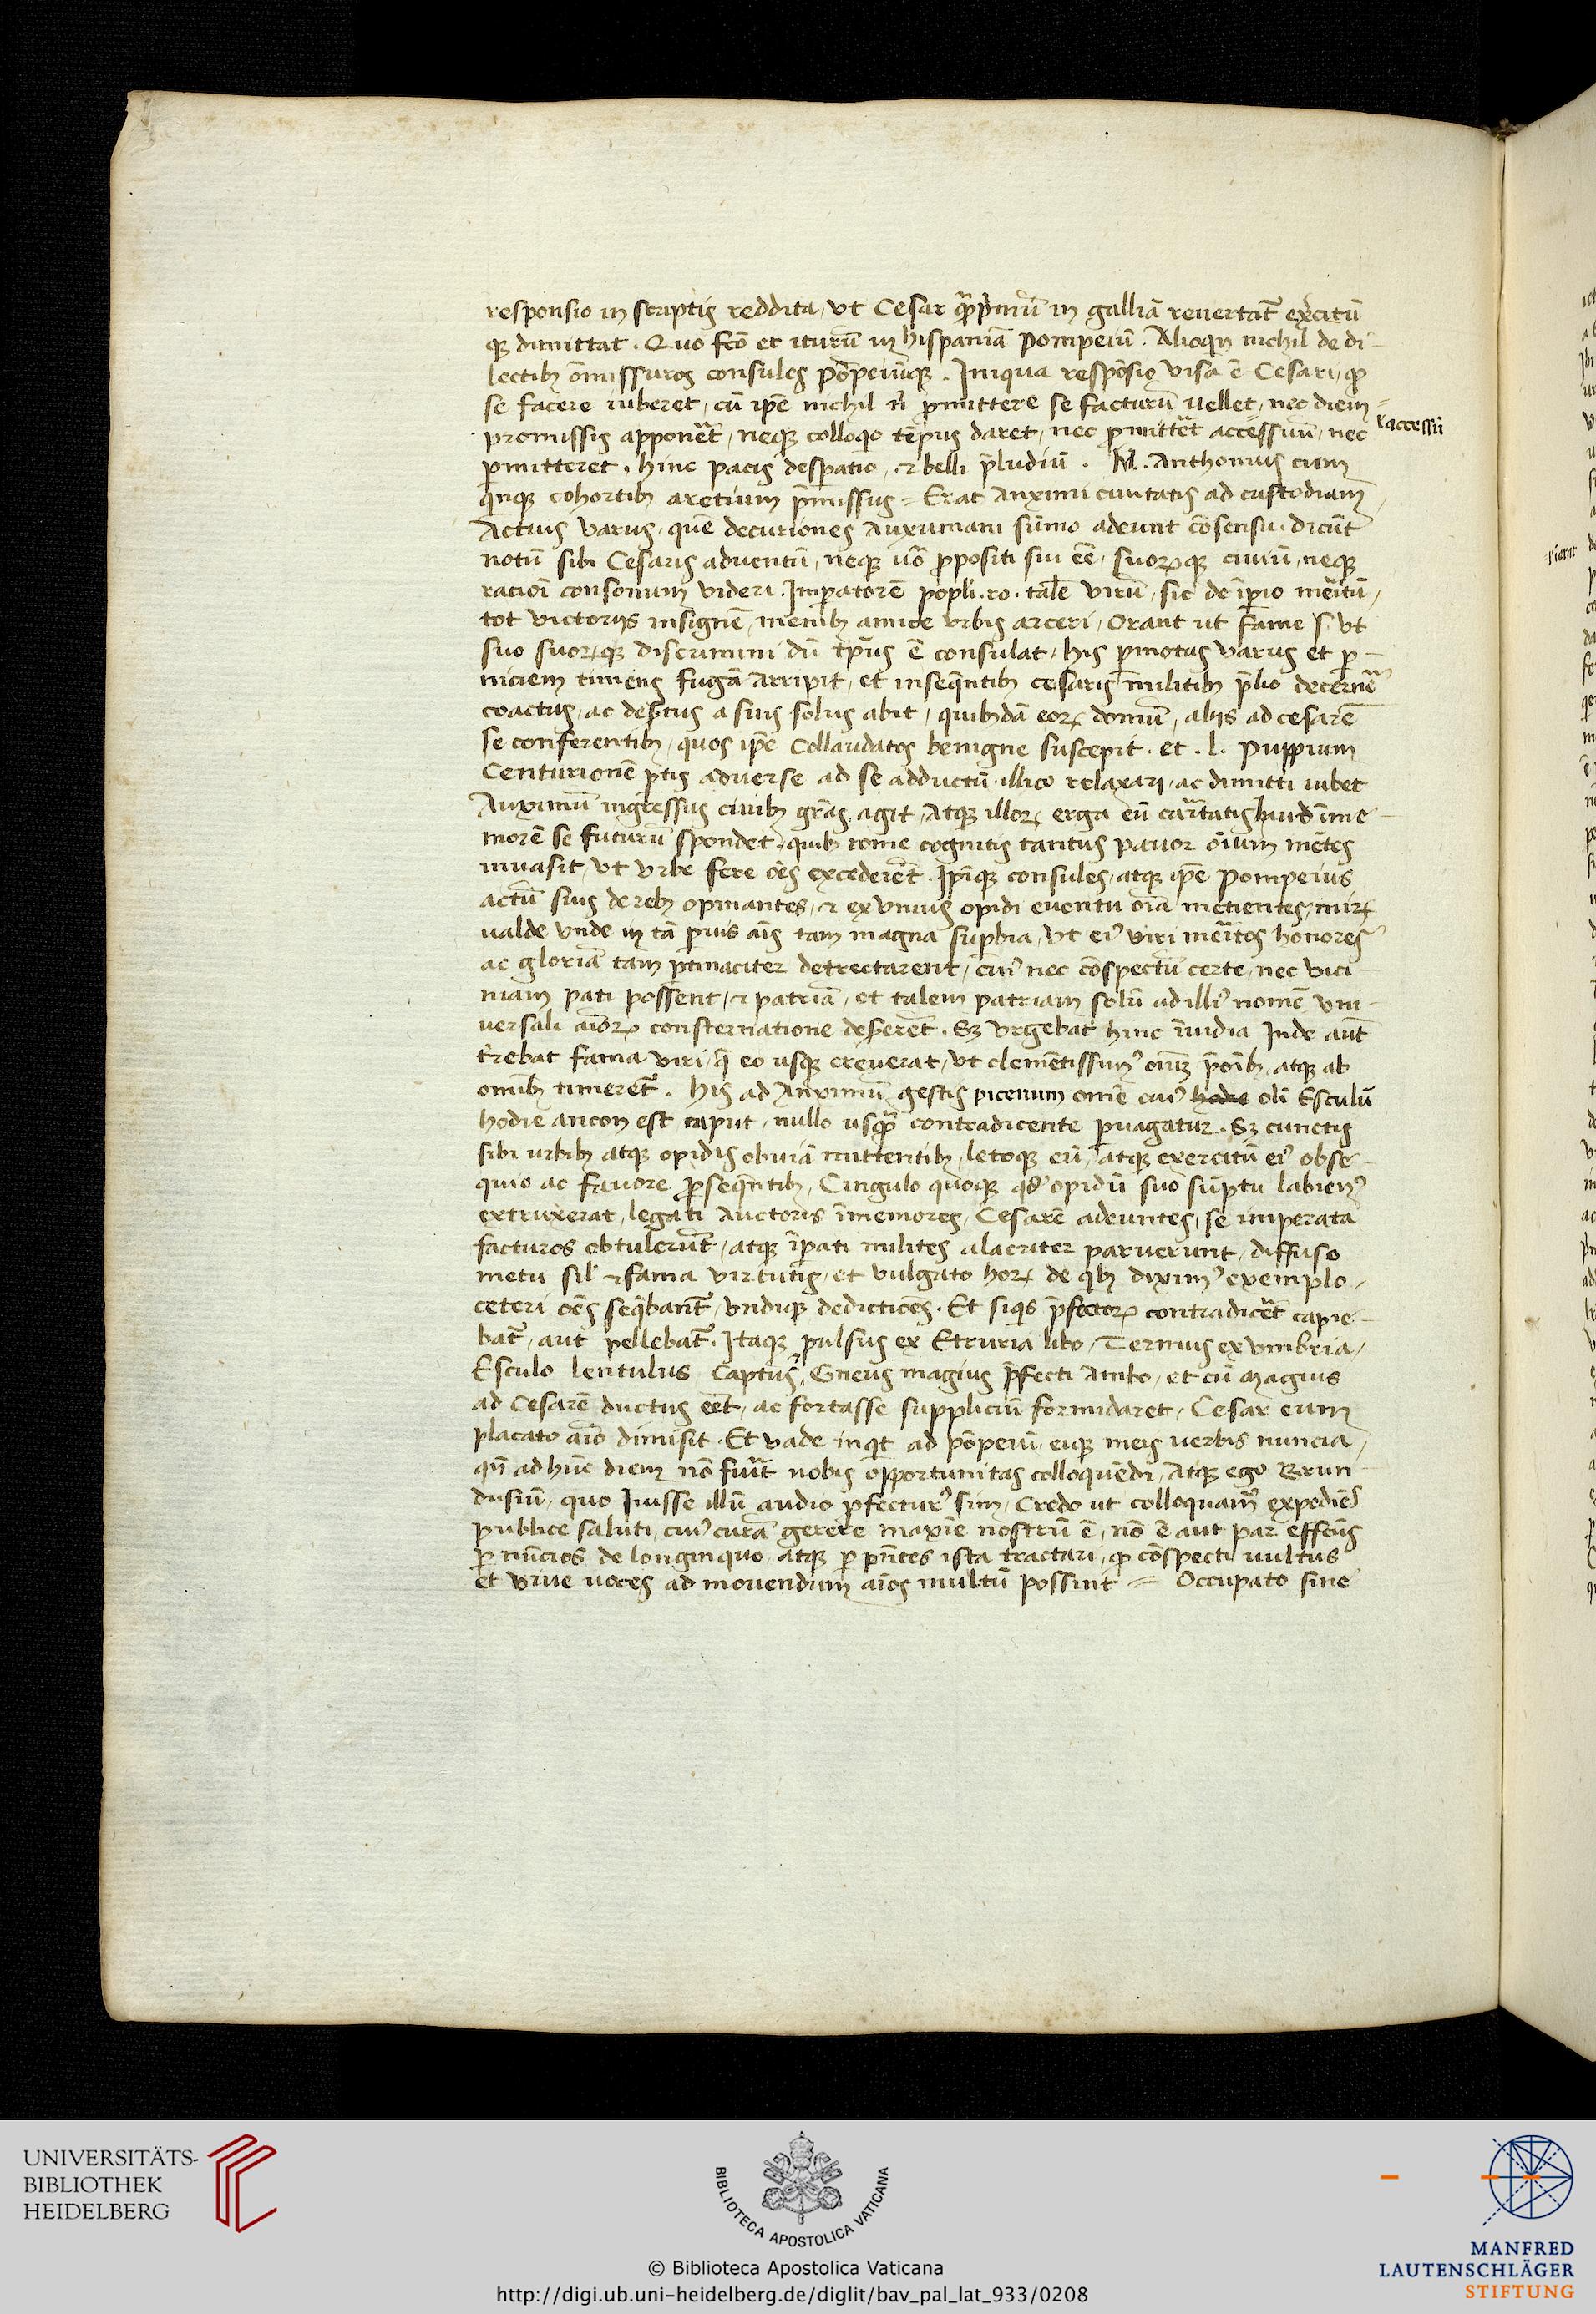 responsio in scriptis reddita, vt Cesar qᵃ̄pⁱmū in galliā reuertat̃ exeʳcitū
qȝ dimittat. Quo fc̄o et iturū in hispaniā Pompeiū. Alioqn̄ nichil de di-
lectibȝ om̄issuros consules Pōpeiūqȝ. Iniqua respōsio visa ē Cesari, qꝛ
se facere iuberet, cū ip̄e nichil n̄ ꝓmittere se facturū uellet, nec diem
promissis apponͤt, neqȝ colloqⁱo tēpus daret, nec ꝓmittͤt accessum, nec
ꝑmitteret, hinc pacis desꝑatio, et belli p̄ludiū. M. Anthonius cum
qⁱnqȝ cohortibȝ aretium p̄missus = Erat Anximi ciuitatis ad custodiam
Actius varus, quē decuriones Auxumani sūmo adeunt cōsensu. dicūt
notū sibi Cesaris aduentū, neqȝ uͦo ꝓpositi sui eē, suorꝝqȝ ciuiū, neqȝ
racioī consonum videri. Imꝑatorē popli. ro. talē virū, sic de īperio meͬitū,
tot victorijs insignē, menibȝ amice vrbis arceri, Orant ut fame s. vt
suo suorꝝqȝ discrimini dū tp̄us ē consulat, his ꝑmotus varus et ꝑ-
niciem timens fugā arripit, et inseqn̄tibȝ cesaris militibȝ p̄lio decernēͤ
coactus, ac deꝑtus a suis solus abit, quibȝdā eorꝝ domū, alijs ad cesarē
se conferentibȝ, quos ip̄e collaudatos benigne suscepit. et. l. Puppium
Centurionē ꝑtis aduerse ad se adductū, illico relaxari, ac dimitti iubet
Auximū ingressus ciuibȝ grās agit, Atqȝ illorꝝ erga eū caͬitatis haud īme-
morē se futurū spondet, quibȝ rome cognitis tantus pauor oīum mētes
inuasit, vt vrbe fere oēs excederēt. Ip̄iqȝ consules, atqȝ ip̄e Pompeius
actū suis de rebȝ opinantes, et ex vnius opidi euentu oīa metientes, mirꝝ
ualde vnde in tā pͥuis aīs tam magna suꝑbia, vt eiꝰ viri meͬitos honores
ac gloriā tam ꝑtinaciter detrectarent, cuiꝰ nec cōspectū certe, nec vici-
niam pati possent, et patriā, et talem patriam solū ad illiꝰ nomē vni-
uersali aīorꝝ consternatione deserēt. Sȝ vrgebat hinc īuidia Inde aut̄
t͛rebat fama viri, q̄ eo usqȝ creuerat, vt clemētissimꝰ oīm p̄oībȝ, atqȝ ab
omnibȝ timeret̃. His ad Anximū gestis picenum omē cuiꝰ hodie olī Esculū
hodie ancon est caput, nullo usqᵃ̄ contradicente ꝑuagatur. Sȝ cunctis
sibi urbibȝ atqȝ opidis obuiā mittentibȝ, letoqȝ eū, atqȝ exercitū eiꝰ obse-
quio ac fauore ꝓseqn̄tibȝ, Cingulo quoqȝ qd̄ opidū suo sūptu labienꝰ
extruxerat, legati Auctoris īmemores, Cesarē adeuntes, se imperata
facturos obtulerūt, atqȝ īpati milites alacriter paruerunt, diffuso
metu sil̄ et fama virtutis, et vulgato horꝝ de qⁱbȝ diximꝰ exemplo,
ceteri oēs seqͤbant̃, vndiqȝ dedicticēs. Et siqⁱs p̄fectorꝝ contradicͤt capie-
bat̃, aut pellebat̃. Itaqȝ pulsus ex Etruria libo, Termus ex vmbria,
Esculo lentulus captus, Gneus magius p̄fecti Ambo, et cū Magius
ad Cesarē ductus eēt, ac fortasse suppliciū formidaret, Cesar eum
placato aīo dimisit. Et vade inqⁱt ad pōpeiū. eiqȝ meis uerbis nuncia,
qn̄ ad hūc diem nō fuͤit nobis opportunitas colloquēdi, Atqȝ ego Brun-
dusiū, quo Iuisse illū audio ꝓfecturꝰ sim, Credo ut colloquamͬ expediēs
publice saluti, cuiꝰ curā gerere maxīe nostrū ē, nō ē aut par effcūs
ꝑ nūcios de longinquo, atqȝ ꝑ pn̄tes ista tractari, qꝛ cōspecti uultus
et viue uoces ad mouendum aīos multū possint = Occupato sine
⌈accessū